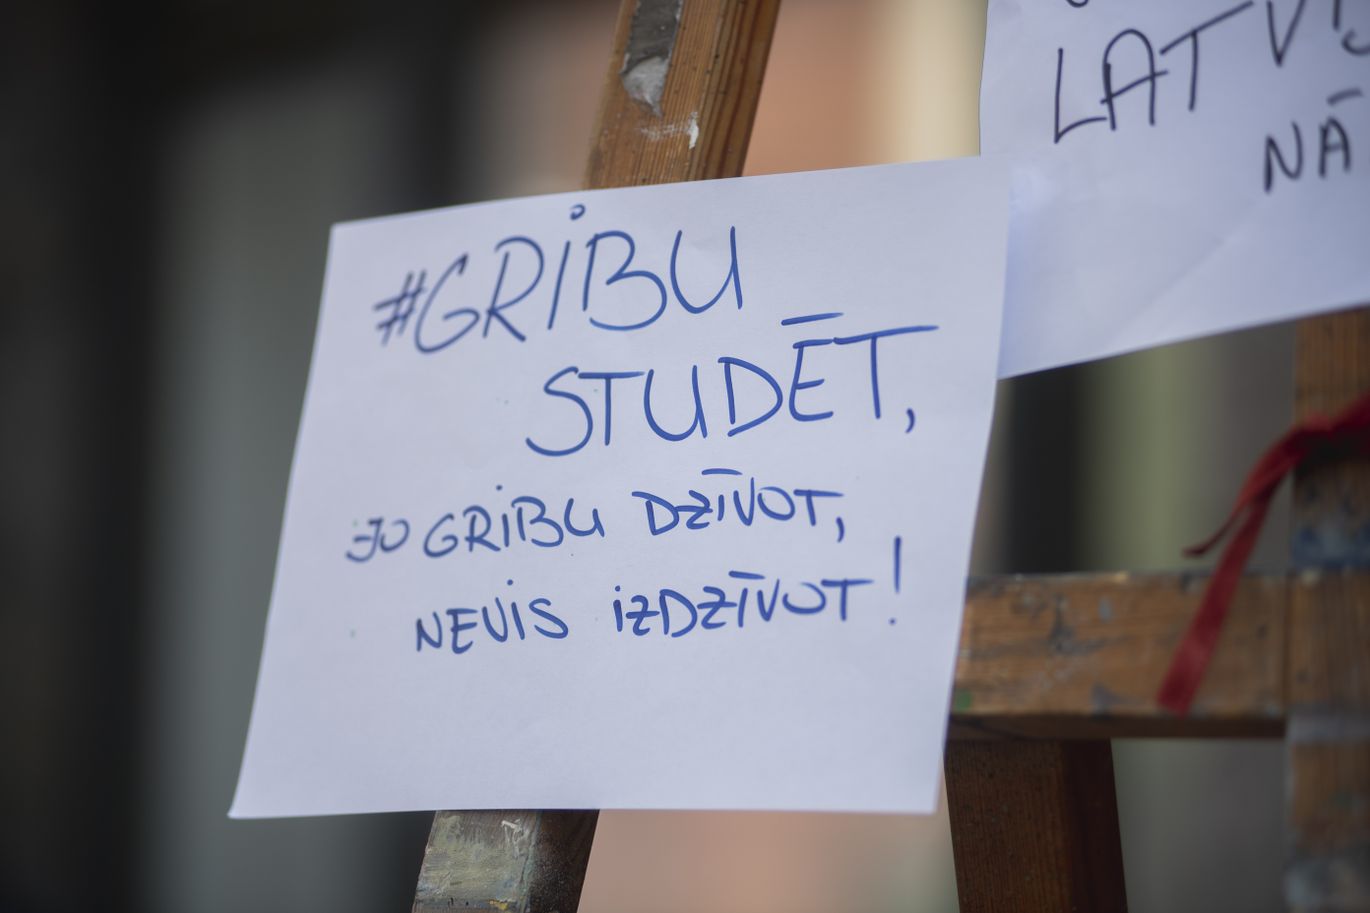 #GRIBU
STUDĒT,
JO GRIBU DZĪVOT,
NEVIS IZDZĪVOT!
LATVIJ
NĀ